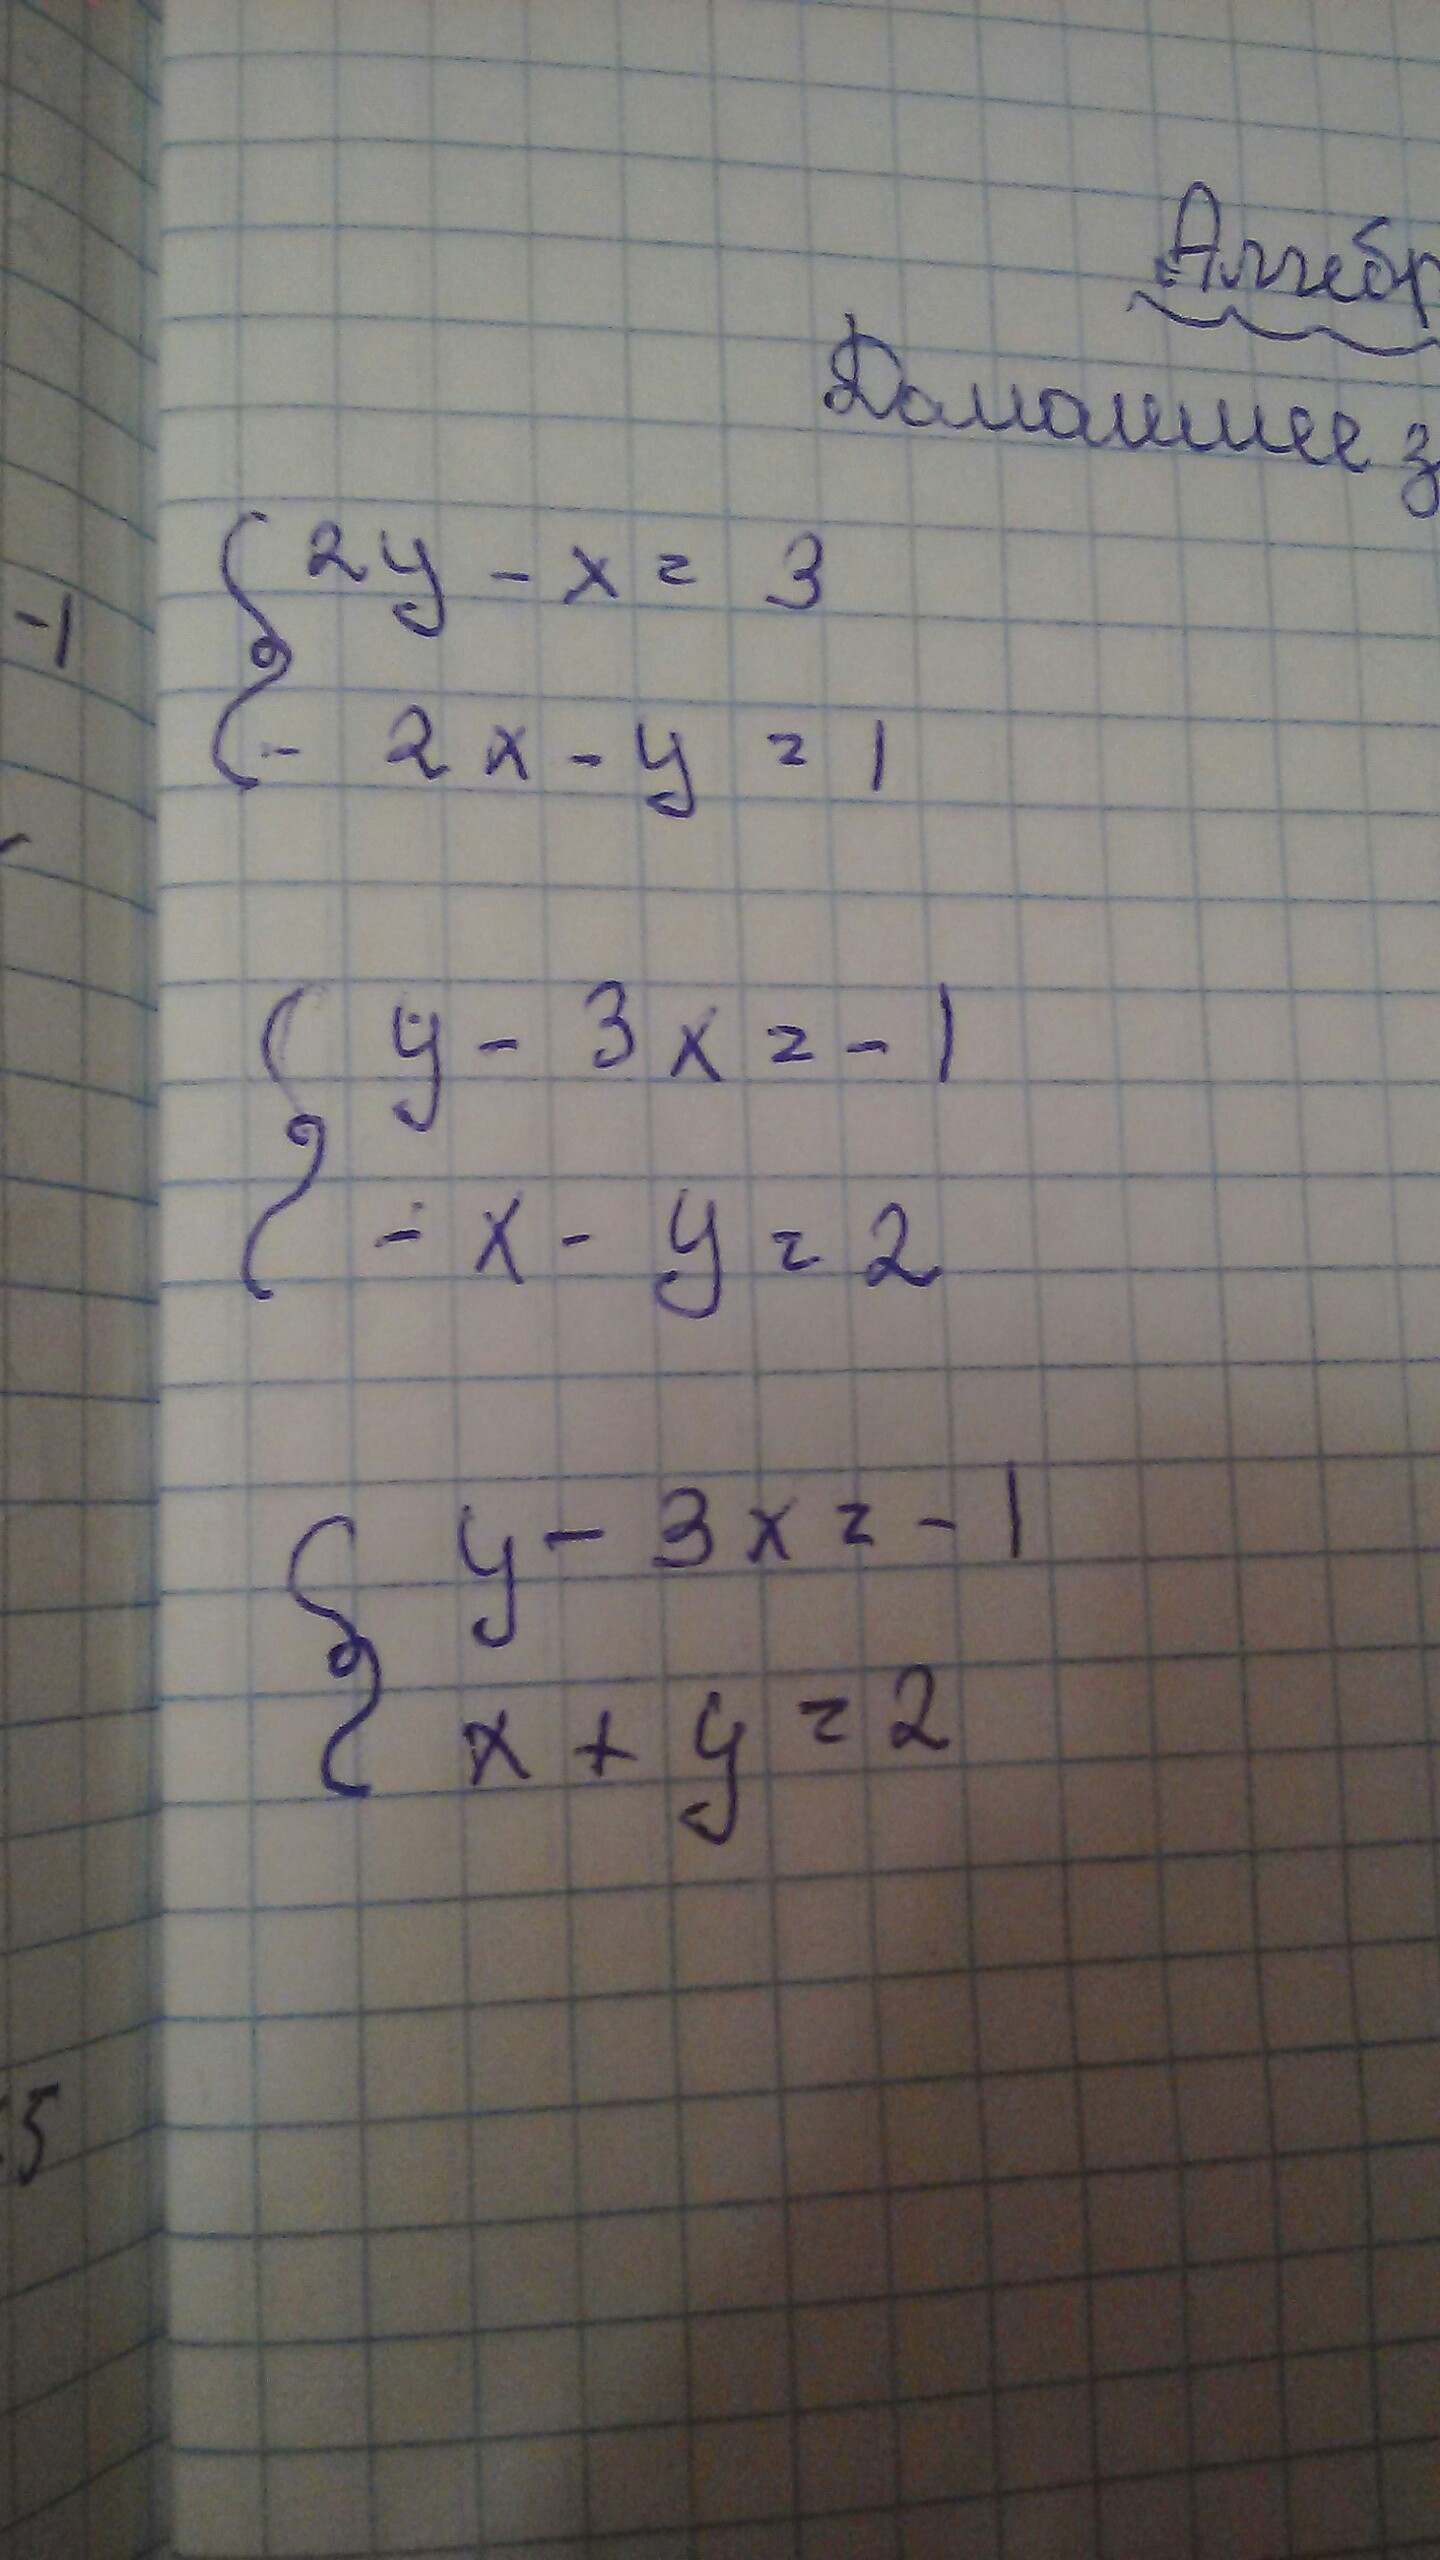 Алгебр
Домашнее з
2y - x = 3
- 2x - y = 1
y - 3x = - 1
- x - y = 2
y - 3x = - 1
x + y = 2
-1
5